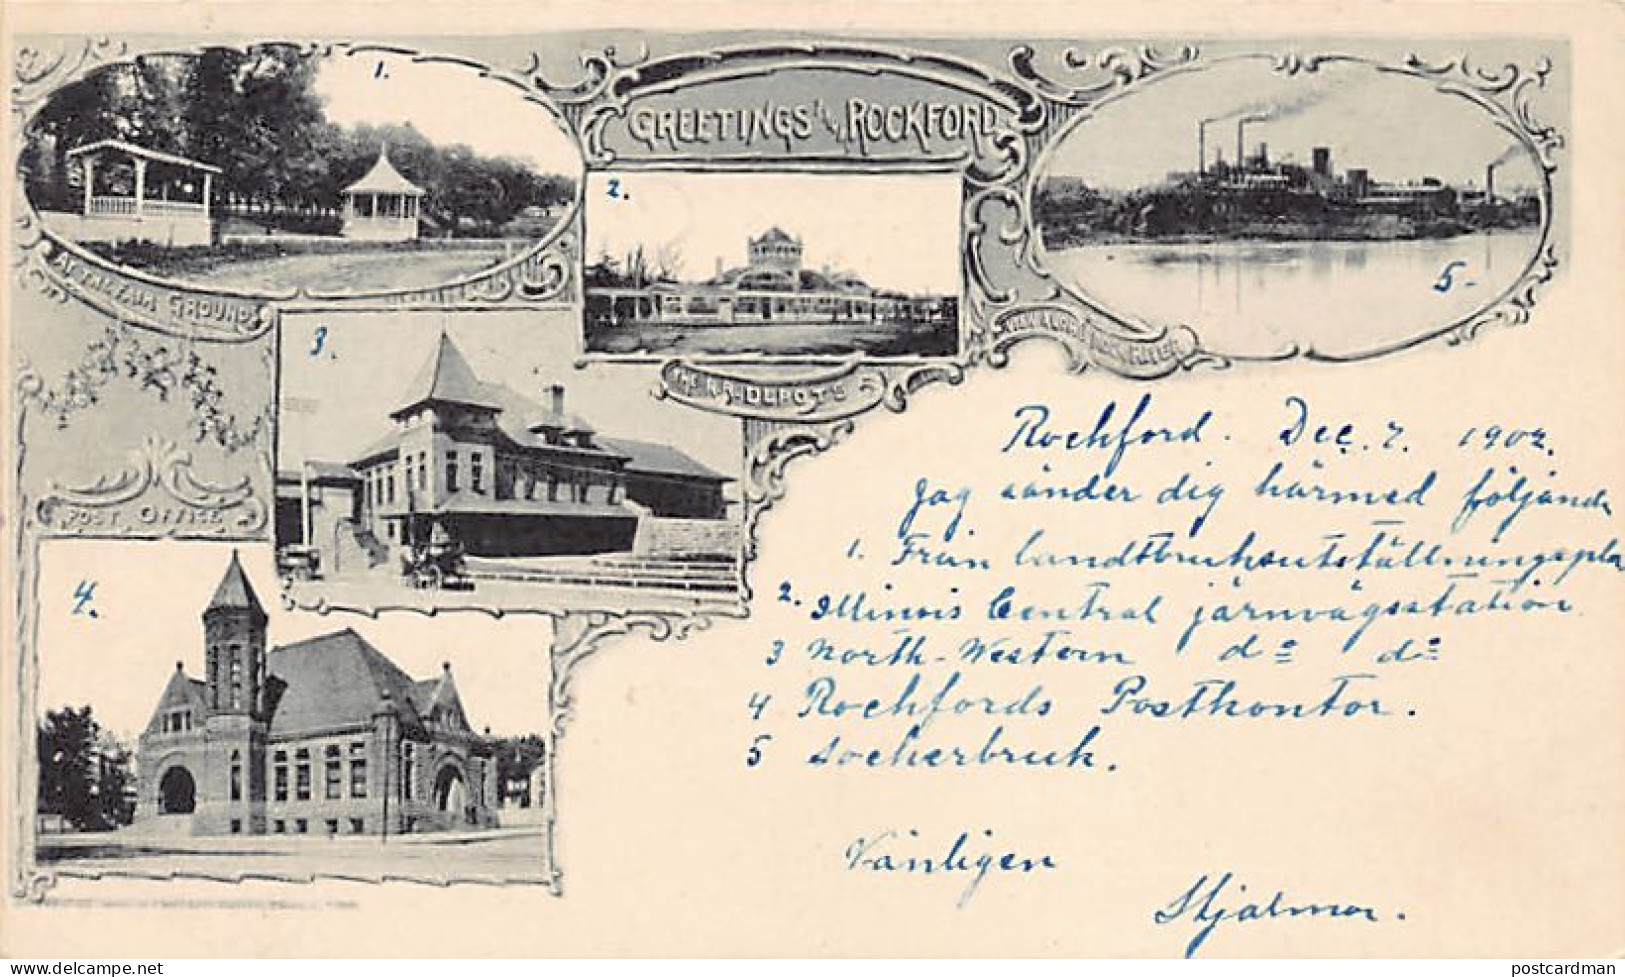 1.
GREETINGS from ROCKFORD
2.
5-
AT THE FAIR GROUNDS
3.
VIEW ALONG ROCK RIVER
THE R.R. DEPOTS
POST OFFICE
4.
Rockford. Dec. 7. 1902.
Jag sänder dig härmed följande
1. Från landtbruksutställningspla
2. Illinois Central järnvägsstation
3 North-Western do do
4 Rockfords Postkontor.
5 Sockerbruk.
Vänligen
Hjalmar.
postcardman